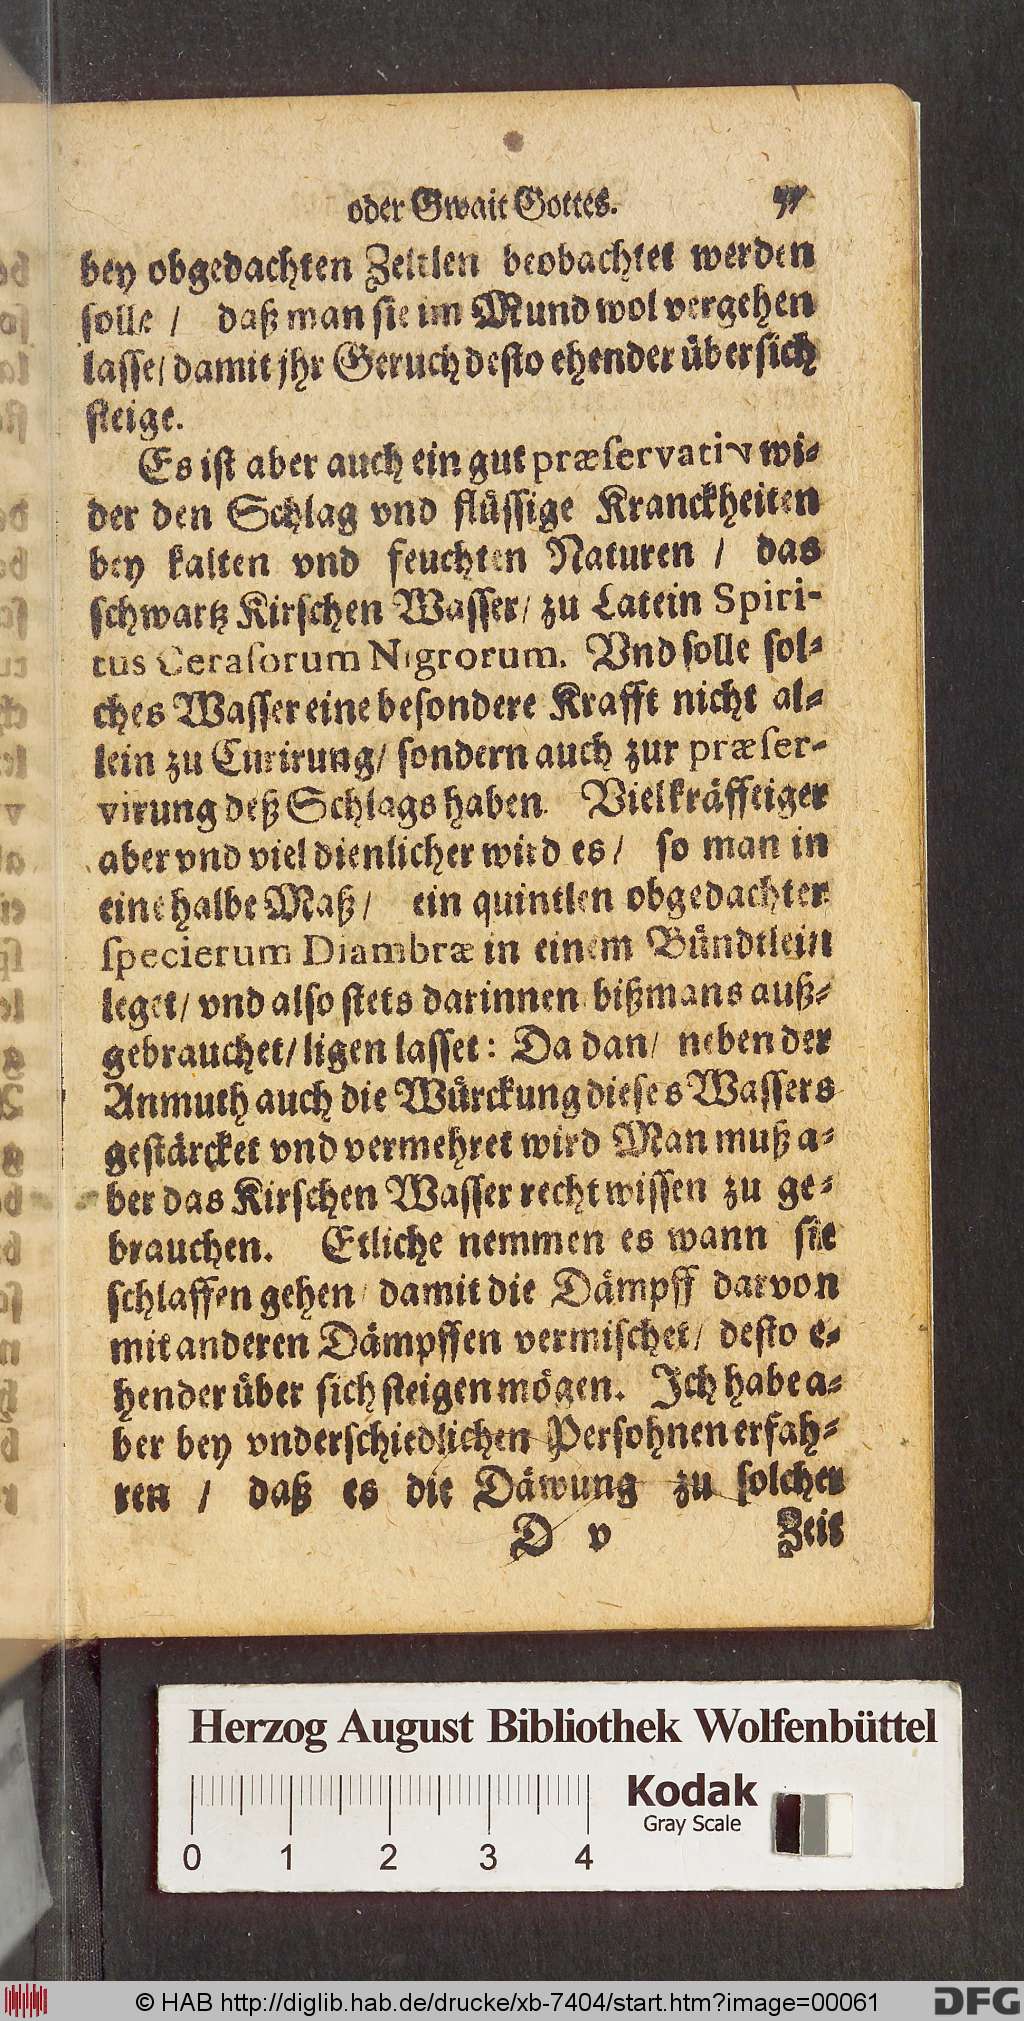 oder Gwalt Gottes. 57
bey obgedachten Zeltlen beobachtet werden
solle / daß man sie im Mund wol vergehen
lasse / damit jhr Geruch desto ehender über sich
steige.
Es ist aber auch ein gut præservativ wi-
der den Schlag vnd flüssige Kranckheiten
bey kalten vnd feuchten Naturen / das
schwartz Kirschen Wasser / zu Latein Spiri-
tus Cerasorum Nigrorum. Vnd solle sol-
ches Wasser eine besondere Krafft nicht al-
lein zu Curirung / sondern auch zur præser-
virung deß Schlags haben. Vielkräfftiger
aber vnd viel dienlicher wird es / so man in
eine halbe Maß / ein quintlen obgedachter
specierum Diambræ in einem Bündtlein
leget / vnd also stets darinnen bißmans auß-
gebrauchet / ligen lasset: Da dan / neben der
Anmuth auch die Würckung dieses Wassers
gestärcket vnd vermehret wird Man muß a-
ber das Kirschen Wasser recht wissen zu ge-
brauchen. Etliche nemmen es wann sie
schlaffen gehen / damit die Dämpff darvon
mit anderen Dämpffen vermischet / desto e-
hender über sich steigen mögen. Ich habe a-
ber bey vnderschiedlichen Persohnen erfah-
ren / daß es die Däwung zu solcher
D v Zeit
Herzog August Bibliothek Wolfenbüttel
Kodak
Gray Scale
0 1 2 3 4
© HAB http://diglib.hab.de/drucke/xb-7404/start.htm?image=00061
DFG